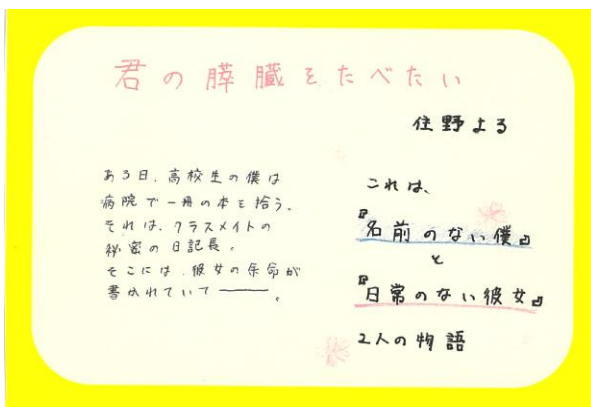 君の膵臓をたべたい
住野よる
ある日、高校生の僕は
病院で一冊の本を拾う。
それは、クラスメイトの
秘密の日記長。
そこには、彼女の余命が
書かれていて―――。
これは、
『名前のない僕』
と
『日常のない彼女』
2人の物語